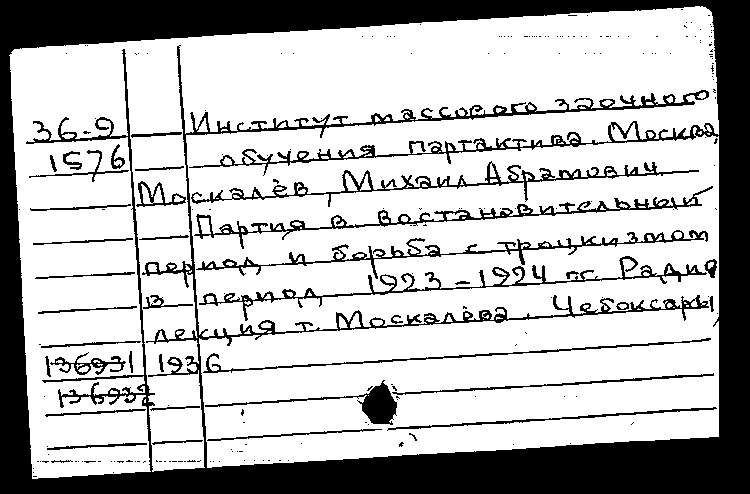 36-9 Институт массового заочного
1576 обучения партактива. Москва
Москалёв, Михаил Абрамович
Партия в востановительный
период и борьба с троцкизмом
в период 1923-1924 гг. Радио
лекция т. Москалёва. Чебоксары,
136931 1936
136932